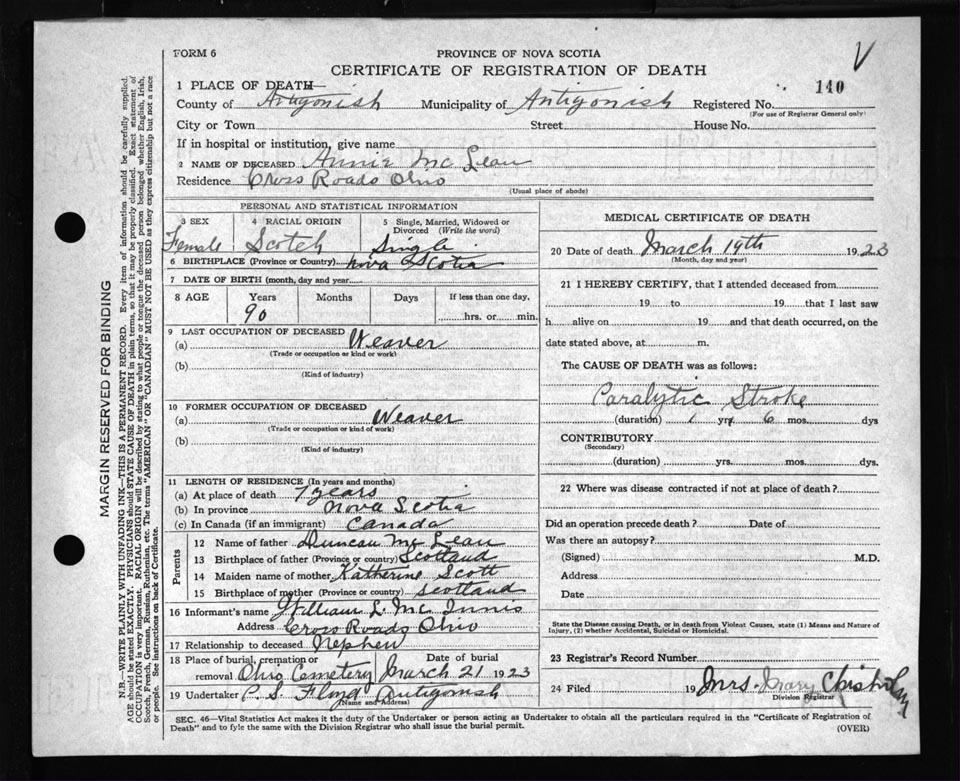 V
FORM 6
PROVINCE OF NOVA SCOTIA
CERTIFICATE OF REGISTRATION OF DEATH
140
1 PLACE OF DEATH—
County of Antigonish Municipality of Antigonish Registered No.
(For use of Registrar General only)
City or Town Street House No.
If in hospital or institution, give name
2 NAME OF DECEASED Annie Mc Lean
Residence Cross Roads Ohio
(Usual place of abode)
PERSONAL AND STATISTICAL INFORMATION
3 SEX 4 RACIAL ORIGIN 5 Single, Married, Widowed or Divorced (Write the word)
Female Scotch Single
6 BIRTHPLACE (Province or Country) Nova Scotia
7 DATE OF BIRTH (month, day and year)
8 AGE Years Months Days If less than one day,
90 hrs. or min.
9 LAST OCCUPATION OF DECEASED
(a) Weaver
(Trade or occupation or kind or work)
(b)
(Kind of industry)
10 FORMER OCCUPATION OF DECEASED
(a) Weaver
(Trade or occupation or kind of work)
(b)
(Kind of industry)
11 LENGTH OF RESIDENCE (In years and months)
(a) At place of death 7 years
(b) In province Nova Scotia
(c) In Canada (if an immigrant) Canada
Parents
12 Name of father Duncan Mc Lean
13 Birthplace of father (Province or country) Scotland
14 Maiden name of mother Katherine Scott
15 Birthplace of mother (Province or country) Scotland
16 Informant's name William L. Mc Innis
Address Cross Roads Ohio
17 Relationship to deceased Nephew
18 Place of burial, cremation or removal Ohio Cemetery Date of burial March 21 1923
19 Undertaker P. S. Floyd Antigonish
(Name and Address)
MEDICAL CERTIFICATE OF DEATH
20 Date of death March 19th 1923
(Month, day and year)
21 I HEREBY CERTIFY, that I attended deceased from
19 to 19 that I last saw
h alive on 19 and that death occurred, on the
date stated above, at m.
The CAUSE OF DEATH was as follows:
Paralytic Stroke
(duration) 1 yrs 6 mos. dys
CONTRIBUTORY
(Secondary)
(duration) yrs. mos. dys.
22 Where was disease contracted if not at place of death?
Did an operation precede death? Date of
Was there an autopsy?
(Signed) M.D.
Address
Date
State the Disease causing Death, or in death from Violent Causes, state (1) Means and Nature of
Injury, (2) whether Accidental, Suicidal or Homicidal.
23 Registrar's Record Number
24 Filed 19 Mrs. Mary Chisholm
Division Registrar
SEC. 46—Vital Statistics Act makes it the duty of the Undertaker or person acting as Undertaker to obtain all the particulars required in the "Certificate of Registration of
Death" and to fyle the same with the Division Registrar who shall issue the burial permit.
(OVER)
MARGIN RESERVED FOR BINDING
N.B.—WRITE PLAINLY WITH UNFADING INK—THIS IS A PERMANENT RECORD. Every item of information should be carefully supplied.
AGE should be stated EXACTLY. PHYSICIANS should STATE CAUSE OF DEATH in plain terms, so that it may be properly classified. Exact statement of
OCCUPATION is very important. RACIAL ORIGIN will be described by stating to what people or tongue the deceased person belonged whether English, Irish,
Scotch, French, German, Russian, Ruthenian, etc. The terms "AMERICAN" OR "CANADIAN" MUST NOT BE USED as they express citizenship but not a race
or people. See instructions on back of Certificate.